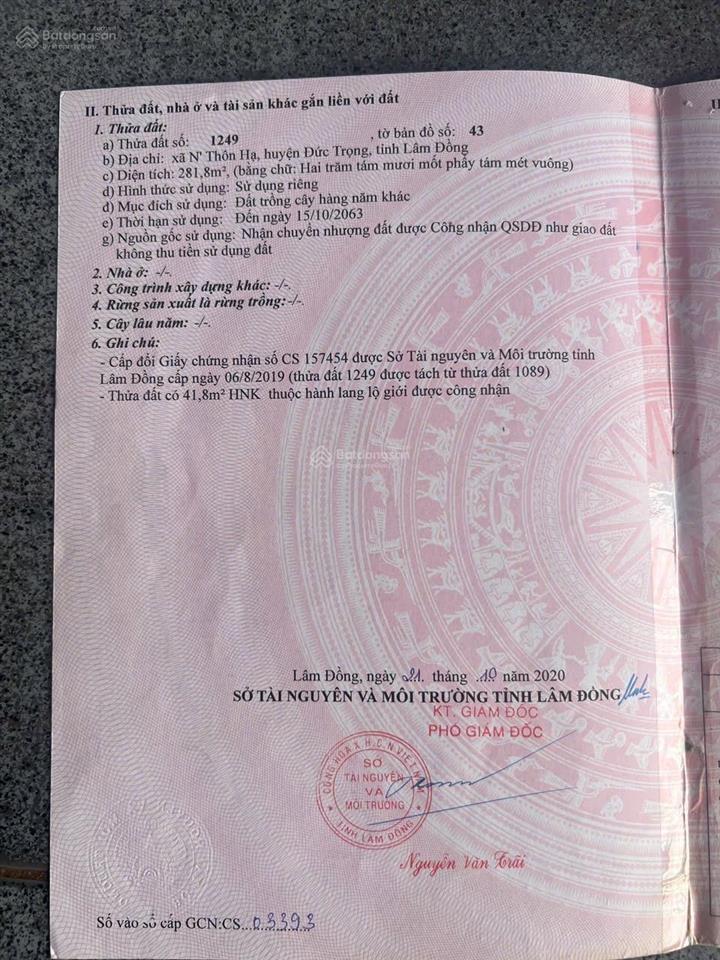 Batdongsan
by PropertyGuru
II. Thửa đất, nhà ở và tài sản khác gắn liền với đất
1. Thửa đất:
a) Thửa đất số: 1249 , tờ bản đồ số: 43
b) Địa chỉ: xã N' Thôn Hạ, huyện Đức Trọng, tỉnh Lâm Đồng
c) Diện tích: 281,8m², (bằng chữ: Hai trăm tám mươi mốt phẩy tám mét vuông)
d) Hình thức sử dụng: Sử dụng riêng
đ) Mục đích sử dụng: Đất trồng cây hàng năm khác
e) Thời hạn sử dụng: Đến ngày 15/10/2063
g) Nguồn gốc sử dụng: Nhận chuyển nhượng đất được Công nhận QSDĐ như giao đất
không thu tiền sử dụng đất
2. Nhà ở: -/-.
3. Công trình xây dựng khác: -/-.
4. Rừng sản xuất là rừng trồng:-/-.
5. Cây lâu năm: -/-.
6. Ghi chú:
- Cấp đổi Giấy chứng nhận số CS 157454 được Sở Tài nguyên và Môi trường tỉnh
Lâm Đồng cấp ngày 06/8/2019 (thửa đất 1249 được tách từ thửa đất 1089)
- Thửa đất có 41,8m² HNK thuộc hành lang lộ giới được công nhận
Batdongsan
Lâm Đồng, ngày 21. tháng .10 năm 2020
SỞ TÀI NGUYÊN VÀ MÔI TRƯỜNG TỈNH LÂM ĐỒNG
KT. GIÁM ĐỐC
PHÓ GIÁM ĐỐC
CỘNG HÒA X.H.C.N VIỆT NAM
SỞ
TÀI NGUYÊN
VÀ
MÔI TRƯỜNG
TỈNH LÂM ĐỒNG
Nguyễn Văn Trãi
Số vào sổ cấp GCN:CS...03393